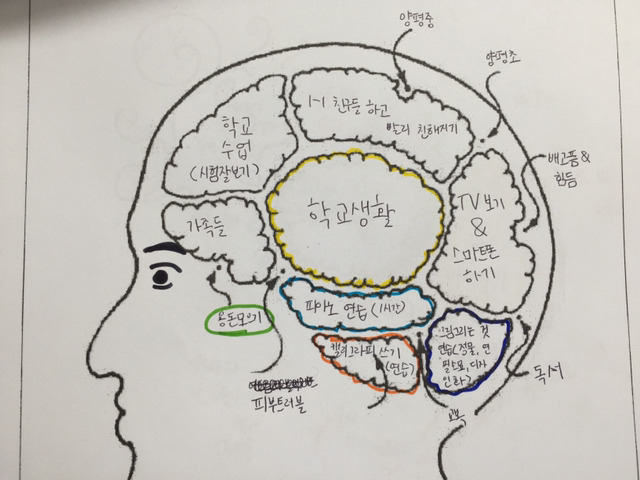 양평중
양평초
1-1 친구들 하고
빨리 친해지기
학교
수업
(시험잘보기)
배고픔&
힘듦
학교생활
TV보기
&
스마트폰
하기
가족들
용돈모으기
피아노 연습(1시간)
그림그리는 것
연습(정물, 연
필소묘, 디자
인화..)
캘리그라피 쓰기
(연습)
피부트러블
독서